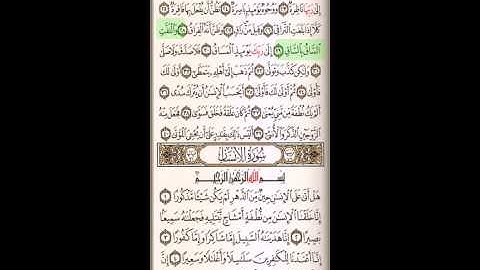 إِلَىٰ رَبِّهَا نَاظِرَةٌ ٢٣ وَوُجُوهٌ يَوْمَئِذٍۭ بَاسِرَةٌ ٢٤ تَظُنُّ أَن يُفْعَلَ بِهَا فَاقِرَةٌ ٢٥
كَلَّآ إِذَا بَلَغَتِ ٱلتَّرَاقِيَ ٢٦ وَقِيلَ مَنْ ۜ رَاقٍ ٢٧ وَظَنَّ أَنَّهُ ٱلْفِرَاقُ ٢٨ وَٱلْتَفَّتِ
ٱلسَّاقُ بِٱلسَّاقِ ٢٩ إِلَىٰ رَبِّكَ يَوْمَئِذٍ ٱلْمَسَاقُ ٣٠ فَلَا صَدَّقَ وَلَا صَلَّىٰ
٣١ وَلَٰكِن كَذَّبَ وَتَوَلَّىٰ ٣٢ ثُمَّ ذَهَبَ إِلَىٰٓ أَهْلِهِۦ يَتَمَطَّىٰٓ ٣٣ أَوْلَىٰ لَكَ
فَأَوْلَىٰ ٣٤ ثُمَّ أَوْلَىٰ لَكَ فَأَوْلَىٰٓ ٣٥ أَيَحْسَبُ ٱلْإِنسَٰنُ أَن يُتْرَكَ سُدًى ٣٦
أَلَمْ يَكُ نُطْفَةً مِّن مَّنِىٍّ يُمْنَىٰ ٣٧ ثُمَّ كَانَ عَلَقَةً فَخَلَقَ فَسَوَّىٰ ٣٨ فَجَعَلَ مِنْهُ
ٱلزَّوْجَيْنِ ٱلذَّكَرَ وَٱلْأُنثَىٰٓ ٣٩ أَلَيْسَ ذَٰلِكَ بِقَٰدِرٍ عَلَىٰٓ أَن يُحْۦِىَ ٱلْمَوْتَىٰ ٤٠
سُورَةُ الإِنسَانِ
بِسْمِ ٱللَّهِ ٱلرَّحْمَٰنِ ٱلرَّحِيمِ
هَلْ أَتَىٰ عَلَى ٱلْإِنسَٰنِ حِينٌ مِّنَ ٱلدَّهْرِ لَمْ يَكُن شَيْـًٔا مَّذْكُورًا ١
إِنَّا خَلَقْنَا ٱلْإِنسَٰنَ مِن نُّطْفَةٍ أَمْشَاجٍ نَّبْتَلِيهِ فَجَعَلْنَٰهُ سَمِيعًۢا
بَصِيرًا ٢ إِنَّا هَدَيْنَٰهُ ٱلسَّبِيلَ إِمَّا شَاكِرًا وَإِمَّا كَفُورًا ٣
إِنَّآ أَعْتَدْنَا لِلْكَٰفِرِينَ سَلَٰسِلَا۟ وَأَغْلَٰلًا وَسَعِيرًا ٤ إِنَّ